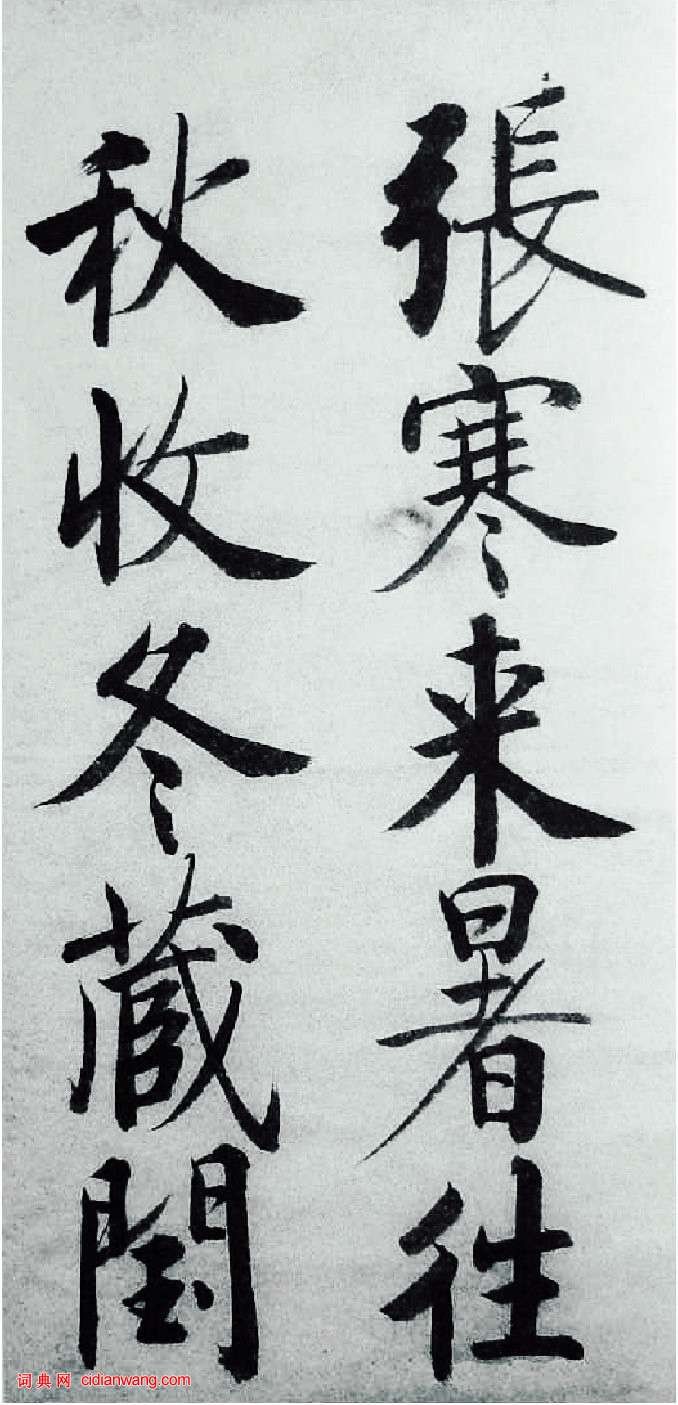 張寒来暑往
秋收冬蔵閏
词典网 cidianwang.com